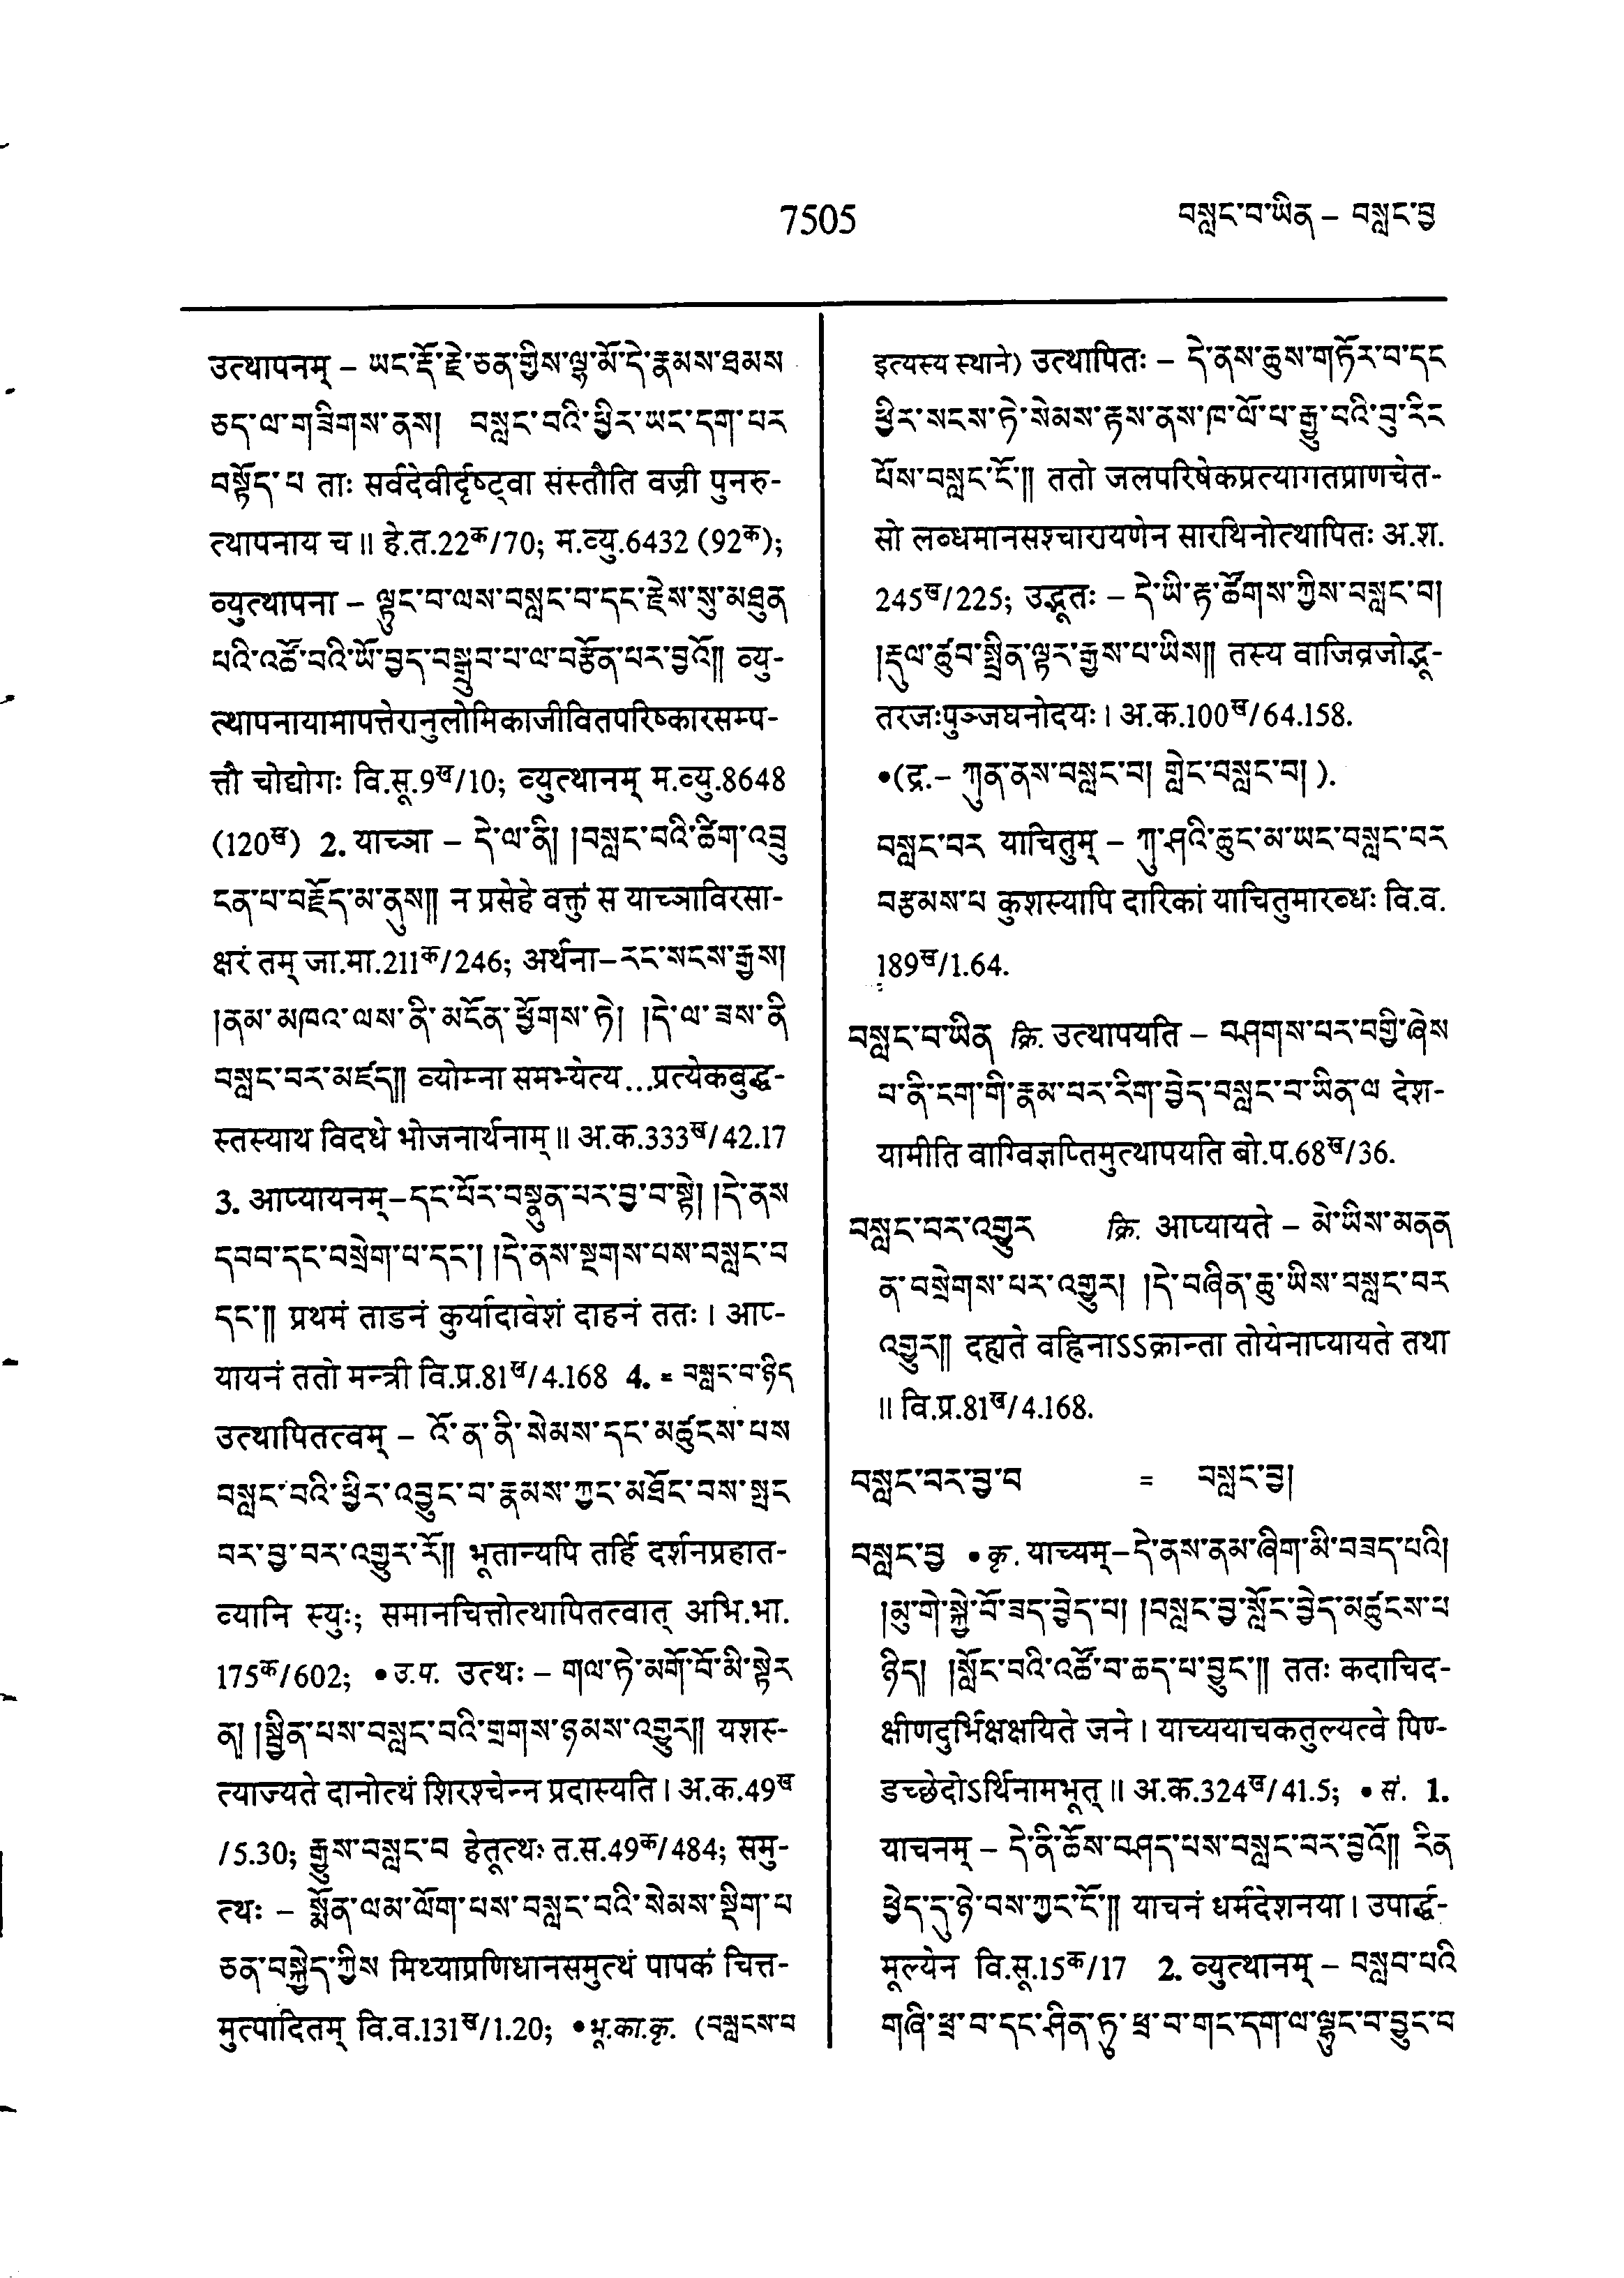 7505
བསླང་བ་ཡིན – བསླང་བྱ
उत्थापनम् – ཡང་རྡོ་རྗེ་ཅན་གྱིས་ལྷ་མོ་དེ་རྣམས་ཐམས
ཅད་ལ་གཟིགས་ནས། བསླང་བའི་ཕྱིར་ཡང་དག་པར
བསྟོད་པ ताः सर्वदेवीर्दृष्ट्वा संस्तौति वज्री पुनरु-
त्थापनाय च ॥ हे.त.22क/70; म.व्यु.6432 (92क);
व्युत्थापना – ལྟུང་བ་ལས་བསླང་བ་དང་རྗེས་སུ་མཐུན
པའི་འཚོ་བའི་ཡོ་བྱད་བསྒྲུབ་པ་ལ་བརྩོན་པར་བྱའོ༎ व्यु-
त्थापनायामापत्तेरानुलोमिकाजीवितपरिष्कारसम्प-
त्तौ चोद्योगः वि.सू.9ख/10; व्युत्थानम् म.व्यु.8648
(120ख) 2. याच्ञा – དེ་ལ་ནི། །བསླང་བའི་ཚིག་འབྲུ
ངན་པ་བརྗོད་མ་ནུས༎ न प्रसेहे वक्तुं स याच्ञाविरसा-
क्षरं तम् जा.मा.211क/246; अर्थना–རང་སངས་རྒྱས།
།ནམ་མཁའ་ལས་ནི་མངོན་ཕྱོགས་ཏེ། །དེ་ལ་ཟས་ནི
བསླང་བར་མཛད༎ व्योम्ना समभ्येत्य...प्रत्येकबुद्ध-
स्तस्याथ विदधे भोजनार्थनाम् ॥ अ.क.333ख/42.17
3. आप्यायनम्–དང་པོར་བསྣུན་པར་བྱ་བ་སྟེ། །དེ་ནས
དབབ་དང་བསྲེག་པ་དང་། །དེ་ནས་སྔགས་པས་བསླང་བ
དང་༎ प्रथमं ताडनं कुर्यादावेशं दाहनं ततः । आप्-
यायनं ततो मन्त्री वि.प्र.81ख/4.168 4. = བསླང་བ་ཉིད
उत्थापितत्वम् – འོ་ན་ནི་སེམས་དང་མཚུངས་པས
བསླང་བའི་ཕྱིར་འབྱུང་བ་རྣམས་ཀྱང་མཐོང་བས་སྤང
བར་བྱ་བར་འགྱུར་རོ༎ भूतान्यपि तर्हि दर्शनप्रहात-
व्यानि स्युः; समानचित्तोत्थापितत्वात् अभि.भा.
175क/602; • उ.प. उत्थः – གལ་ཏེ་མགོ་བོ་མི་སྟེར
ན། །སྦྱིན་པས་བསླང་བའི་གྲགས་ཉམས་འགྱུར༎ यशस्-
त्याज्यते दानोत्थं शिरश्चेन्न प्रदास्यति । अ.क.49ख
/5.30; རྒྱུས་བསླང་བ हेतूत्थः त.स.49क/484; समु-
त्थः – སྨོན་ལམ་ལོག་པས་བསླང་བའི་སེམས་སྡིག་པ
ཅན་བསྐྱེད་ཀྱིས मिथ्याप्रणिधानसमुत्थं पापकं चित्त-
मुत्पादितम् वि.व.131ख/1.20; • भू.का.कृ. (བསླངས་པ
इत्यस्य स्थाने) उत्थापितः – དེ་ནས་ཆུས་གཏོར་བ་དང
ཕྱིར་སངས་ཏེ་སེམས་རྟས་ནས་ཁ་ལོ་པ་རྒྱུ་བའི་བུ་རིང
པོས་བསླང་ངོ་༎ ततो जलपरिषेकप्रत्यागतप्राणचेत-
सो लब्धमानसश्चारायणेन सारथिनोत्थापितः अ.श.
245ख/225; उद्भूतः – དེ་ཡི་རྟ་ཚོགས་ཀྱིས་བསླང་བ།
།རྡུལ་ཚུབ་སྤྲིན་ལྟར་རྒྱས་པ་ཡིས༎ तस्य वाजिव्रजोद्भू-
तरजःपुञ्जघनोदयः । अ.क.100ख/64.158.
•(द्र.– ཀུན་ནས་བསླང་བ། གླེང་བསླང་བ། ).
བསླང་བར याचितुम् – ཀུ་ཤའི་ཆུང་མ་ཡང་བསླང་བར
བརྩམས་པ कुशस्यापि दारिकां याचितुमारब्धः वि.व.
189ख/1.64.
བསླང་བ་ཡིན क्रि. उत्थापयति – བཤགས་པར་བགྱི་ཞེས
པ་ནི་ངག་གི་རྣམ་པར་རིག་བྱེད་བསླང་བ་ཡིན་ལ देश-
यामीति वाग्विज्ञप्तिमुत्थापयति बो.प.68ख/36.
བསླང་བར་འགྱུར क्रि. आप्यायते – མེ་ཡིས་མནན
ན་བསྲེགས་པར་འགྱུར། །དེ་བཞིན་ཆུ་ཡིས་བསླང་བར
འགྱུར༎ दह्यते वह्निनाऽऽक्रान्ता तोयेनाप्यायते तथा
॥ वि.प्र.81ख/4.168.
བསླང་བར་བྱ་བ = བསླང་བྱ།
བསླང་བྱ • कृ. याच्यम्–དེ་ནས་ནམ་ཞིག་མི་བཟད་པའི།
།མུ་གེ་སྐྱེ་བོ་ཟད་བྱེད་པ། །བསླང་བྱ་སློང་བྱེད་མཚུངས་པ
ཉིད། །སློང་བའི་འཚོ་བ་ཆད་པ་བྱུང་༎ ततः कदाचिद-
क्षीणदुर्भिक्षक्षयिते जने । याच्ययाचकतुल्यत्वे पिण-
डच्छेदोऽर्थिनामभूत् ॥ अ.क.324ख/41.5; • सं. 1.
याचनम् – དེ་ནི་ཆོས་བཤད་པས་བསླང་བར་བྱའོ༎ རིན
ཕྱེད་དུ་ཉེ་བས་ཀྱང་ངོ་༎ याचनं धर्मदेशनया । उपार्द्ध-
मूल्येन वि.सू.15क/17 2. व्युत्थानम् – བསླབ་པའི
གཞི་ཕྲ་བ་དང་ཤིན་ཏུ་ཕྲ་བ་གང་དག་ལ་ལྟུང་བ་བྱུང་བ